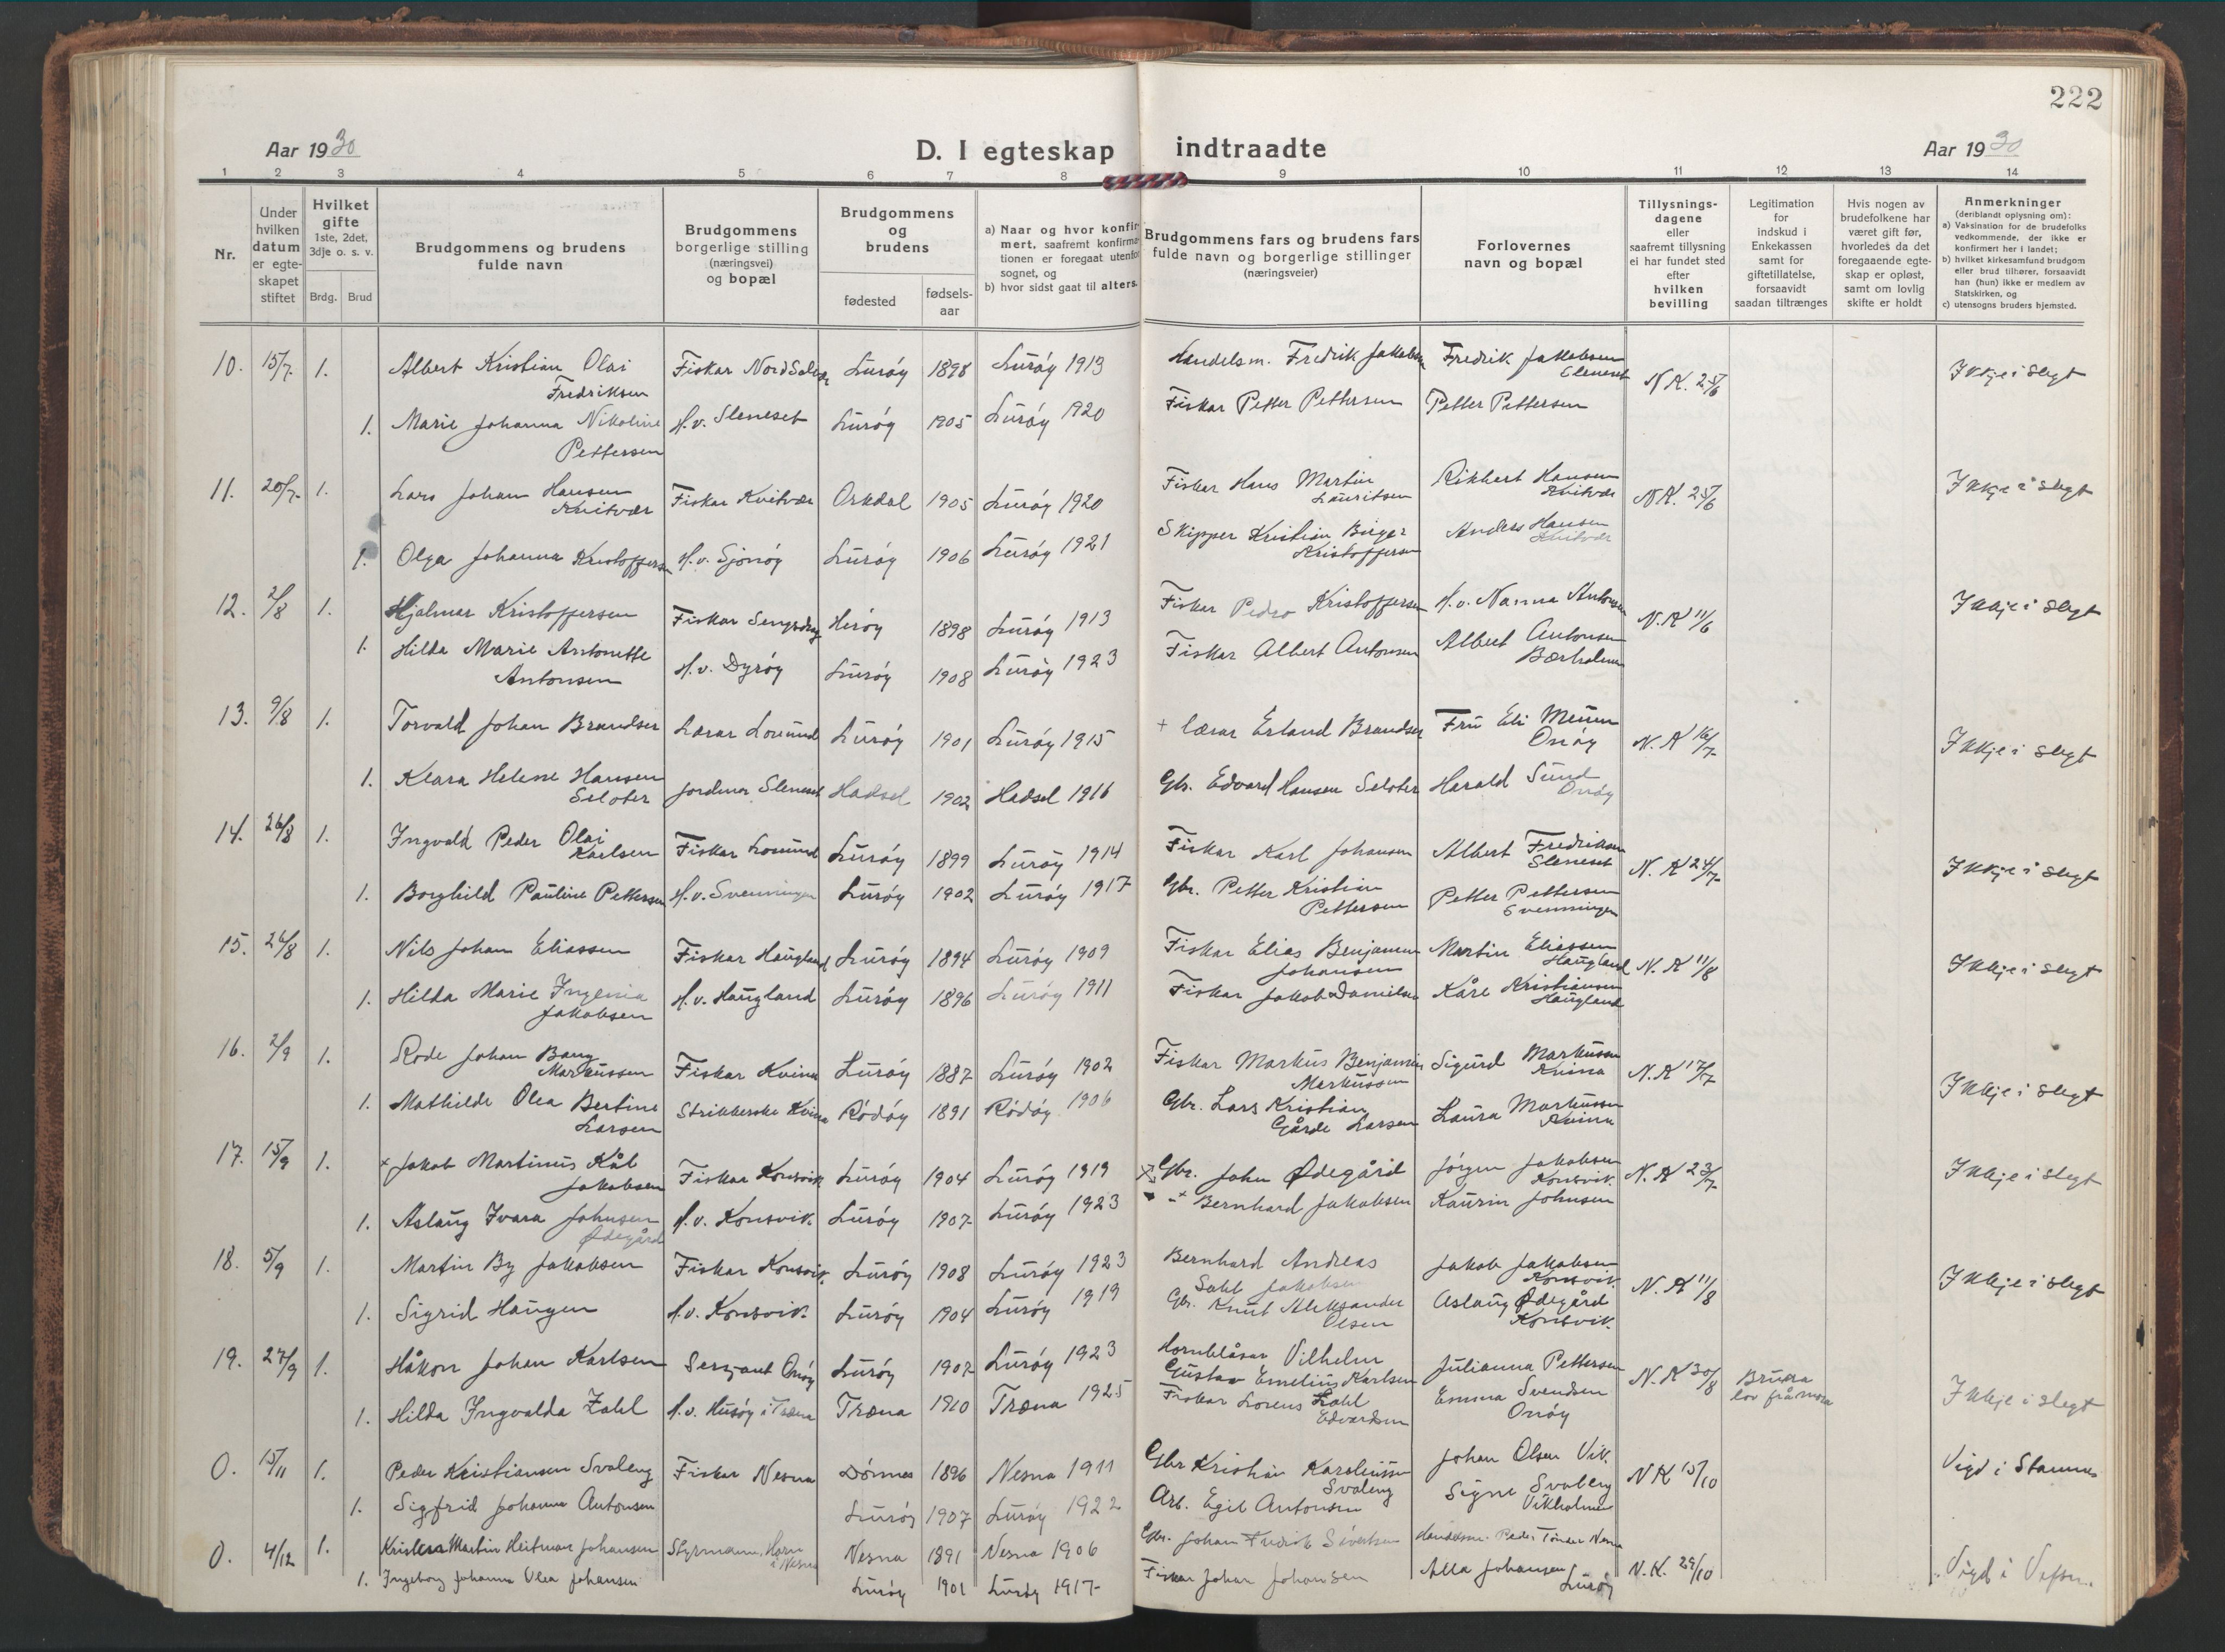 222
Aar 1930
D. I egteskap indtraadte
Aar 1930
1 2 3 4 5 6 7 8 9 10 11 12 13 14
Nr.
Under hvilken datum er egteskapet stiftet
Hvilket gifte 1ste, 2det, 3dje o. s. v.
Brdg. Brud
Brudgommens og brudens fulde navn
Brudgommens borgerlige stilling (næringsvei) og bopæl
Brudgommens og brudens
fødested
fødsels-aar
a) Naar og hvor konfirmert, saafremt konfirmationen er foregaat utenfor sognet, og
b) hvor sidst gaat til alters.
Brudgommens fars og brudens fars fulde navn og borgerlige stillinger (næringsveier)
Forlovernes navn og bopæl
Tillysnings-dagene eller saafremt tillysning ei har fundet sted efter hvilken bevilling
Legitimation for indskud i Enkekassen samt for giftetillatelse, forsaavidt saadan tiltrænges
Hvis nogen av brudefolkene har været gift før, hvorledes da det foregaaende egteskap er opløst, samt om lovlig skifte er holdt
Anmerkninger
(deriblandt oplysning om):
a) Vaksination for de brudefolks vedkommende, der ikke er konfirmert her i landet;
b) hvilket kirkesamfund brudgom eller brud tilhører, forsaavidt han (hun) ikke er medlem av Statskirken, og
c) utensogns bruders hjemsted.
10. 15/7 1. Albert Kristian Olai Fredriksen Fiskar Nord Solvær Lurøy 1898 Lurøy 1913 Handelsm. Fredrik Jakobsen Fredrik Jakobsen Sleneset N.K. 25/6 Ikkje i slegt
1. Marie Johanna Nikoline Pettersen H.v. Sleneset Lurøy 1905 Lurøy 1920 Fiskar Petter Pettersen Petter Pettersen
11. 20/7 1. Lars Johan Hansen Kvitvær Fiskar Kvitvær Orkdal 1905 Lurøy 1920 Fiskar Hans Martin Lauritsen Rikhart Hansen Kvitvær N.K. 25/6 Ikkje i slegt
1. Olga Johanna Kristoffersen H.v. Sjonøy Lurøy 1906 Lurøy 1921 Skipper Kristian Birger Kristoffersen Anders Hansen Kvitvær
12. 2/8 1. Hjalmar Kristoffersen Fiskar Herøy 1898 Lurøy 1913 Fiskar Pedro Kristoffersen H.v. Nanna Antonsen N.K 11/6 Ikkje i slegt
1. Hilda Marie Antonette Antonsen H.v. Dyrøy Lurøy 1908 Lurøy 1923 Fiskar Albert Antonsen Albert Antonsen Bærholmen
13. 9/8 1. Torvald Johan Brandser Lærar Lovund Lurøy 1901 Lurøy 1915 + lærar Erland Brandser Fru Eli Meum Onøy N.K 16/7 Ikkje i slegt
1. Klara Helene Hansen Seloter Jordmor Sleneset Hadsel 1902 Hadsel 1916 Gbr. Edvard Hansen Seloter Harald Sund Onøy
14. 26/8 1. Ingvald Peder Olai Karlsen Fiskar Lovund Lurøy 1899 Lurøy 1914 Fiskar Karl Johansen Albert Fredriksen Sleneset N.K 24/7 Ikkje i slegt
1. Borghild Pauline Pettersen H.v. Svenningen Lurøy 1902 Lurøy 1917 Gbr. Petter Kristian Pettersen Petter Pettersen Svenningen
15. 26/8 1. Nils Johan Eliassen Fiskar Haugland Lurøy 1894 Lurøy 1909 Fiskar Elias Benjamin Johansen Martin Eliassen Haugland N.K 11/8 Ikkje i slegt
1. Hilda Marie Ingenia Jakobsen H.v. Haugland Lurøy 1896 Lurøy 1911 Fiskar Jakob Danielsen Kåre Kristiansen Haugland
16. 2/9 1. Rode Johan Bang Markussen Fiskar Kvina Lurøy 1887 Lurøy 1902 Fiskar Markus Benjamin Markussen Sigurd Markussen Kvina N.K 17/7 Ikkje i slegt
1. Mathilde Olea Bertine Larsen Strikkerske Kvina Rødøy 1891 Rødøy 1906 Gbr. Lars Kristian Gårde Larsen Laura Markussen Kvina
17. 15/9 1. + Jakob Martinus Kåt Jakobsen Fiskar Konsvik Lurøy 1904 Lurøy 1919 Gbr. John Ødegård Jørgen Jakobsen Konsvik. N.K 23/7 Ikkje i slegt
1. Aslaug Ivara Johnsen Ødegård H.v. Konsvik. Lurøy 1907 Lurøy 1923 -"- Bernhard Jakobsen Kaurin Johnsen
18. 5/9 1. Martin By Jakobsen Fiskar Konsvik. Lurøy 1908 Lurøy 1923 Bernhard Andreas Dahl Jakobsen Jakob Jakobsen Konsvik. N.K 11/8 Ikkje i slegt
1. Sigrid Haugen H.v. Konsvik. Lurøy 1904 Lurøy 1919 Gbr. Knut Aleksander Olsen Aslaug Ødegård Konsvik.
19. 27/9 1. Håkon Johan Karlsen Sersjant Onøy Lurøy 1907 Lurøy 1923 Hornblåsar Vilhelm Gustav Emelius Karlsen Julianna Pettersen N.K 30/8 Brura lov frå mora Ikkje i slegt
1. Hilda Ingvalda Zahl H.v. Husøy i Træna Træna 1910 Træna 1925 Fiskar Lorens Zahl Edvardsen Emma Svendsen Onøy
0. 15/11 1. Peder Kristiansen Svaleng Fiskar Nesna Dønnes 1896 Nesna 1911 Gbr Kristian Karolius­sen Svaleng Johan Olsen Vik. N K 15/10 Vigd i Stamnes
1. Sigfrid Johanna Antonsen Lurøy 1907 Lurøy 1922 Arb. Egil Antonsen Signe Svaleng Vikholmen
0. 4/12 1. Kristen Martin Heitman Johansen Styrmann, Horn i Nesna Nesna 1891 Nesna 1906 Gbr. Johan Fredrik Sivertsen Handelsm. Peder Tønder Nesna N.K. 29/10 Vigd i Vefsn.
1. Ingeborg Johanna Olea Johansen Lurøy 1901 Lurøy 1917 Fiskar Johan Johansen Alla Johansen Lurøy